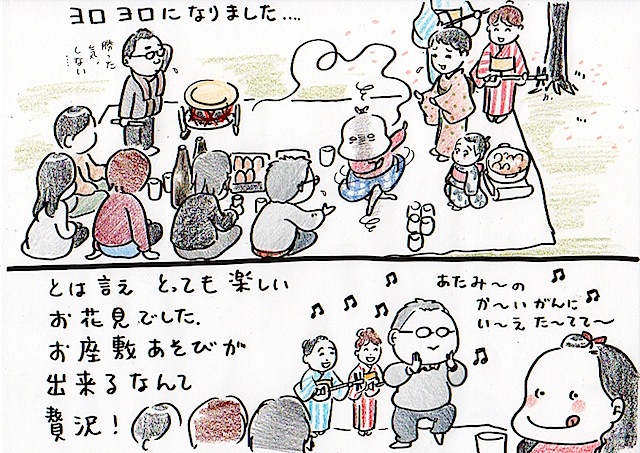 ヨロヨロになりました‥‥
勝った
気が
しない…
とは言え とっても楽しい
お花見でした.
お座敷あそびが
出来るなんて
贅沢!
あたみ〜の
か〜いがんに
い〜え た〜てて〜